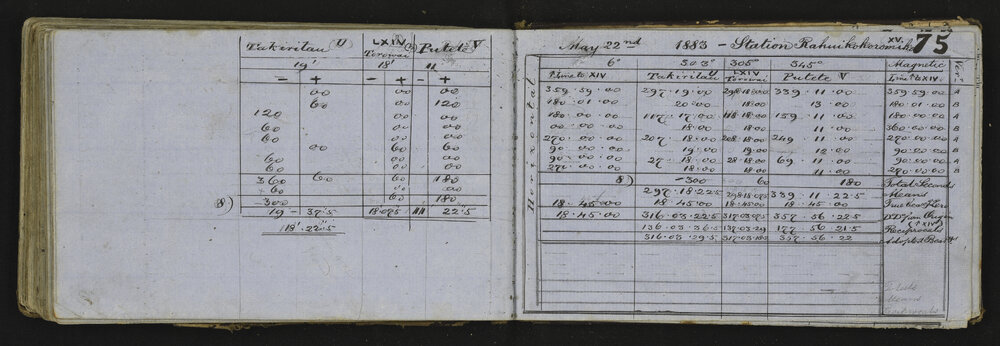 Takiritau U LXIV Torowai Putete V
19' 18' 11
- + - + - +
00 00 00
60 00 120
120 00 00
60 00 00
60 00 00
00 60 60
60 00 00
60 00 00
360 60 60 180
+60 00 00
8) -300 60 180
19 - 37.5 18'07.5 11 22.5
18'.22.5
May 22nd 1883 - Station Rahuikokoromiko XV. 75
6° 303° 305° 345° Magnetic Ver:
Horizontal
Takiritau U LXIV Torowai Putete V
359.59.00 297.19.00 298.18.00 339.11.00 359.59.00 A
180.01.00 20.00 18.00 13.00 180.01.00 B
117.17.00 118.18.00 159.11.00 180.00.00 A
00.00.00 18.00 18.00 11.00 360.00.00 B
270.00.00 207.18.00 208.18.00 249.11.00 270.00.00 A
90.00.00 19.00 19.00 12.00 90.00.00 B
90.00.00 27.18.00 28.18.00 69.11.00 90.00.00 A
18.00 18.00 11.00 270.00.00 B
8) -300 60 180 Total Seconds
297.18.22.5 298.18.07.5 339.11.22.5 Means
18.45.00 18.45.00 18.45.00 18.45.00
18.45.00 316.03.22.5 317.03.07.5 357.56.22.5
136.03.36.5 137.03.29 177.56.21.5 Reciprocals
316.03.29.5 317.03.18 357.56.22 Adopted
Means